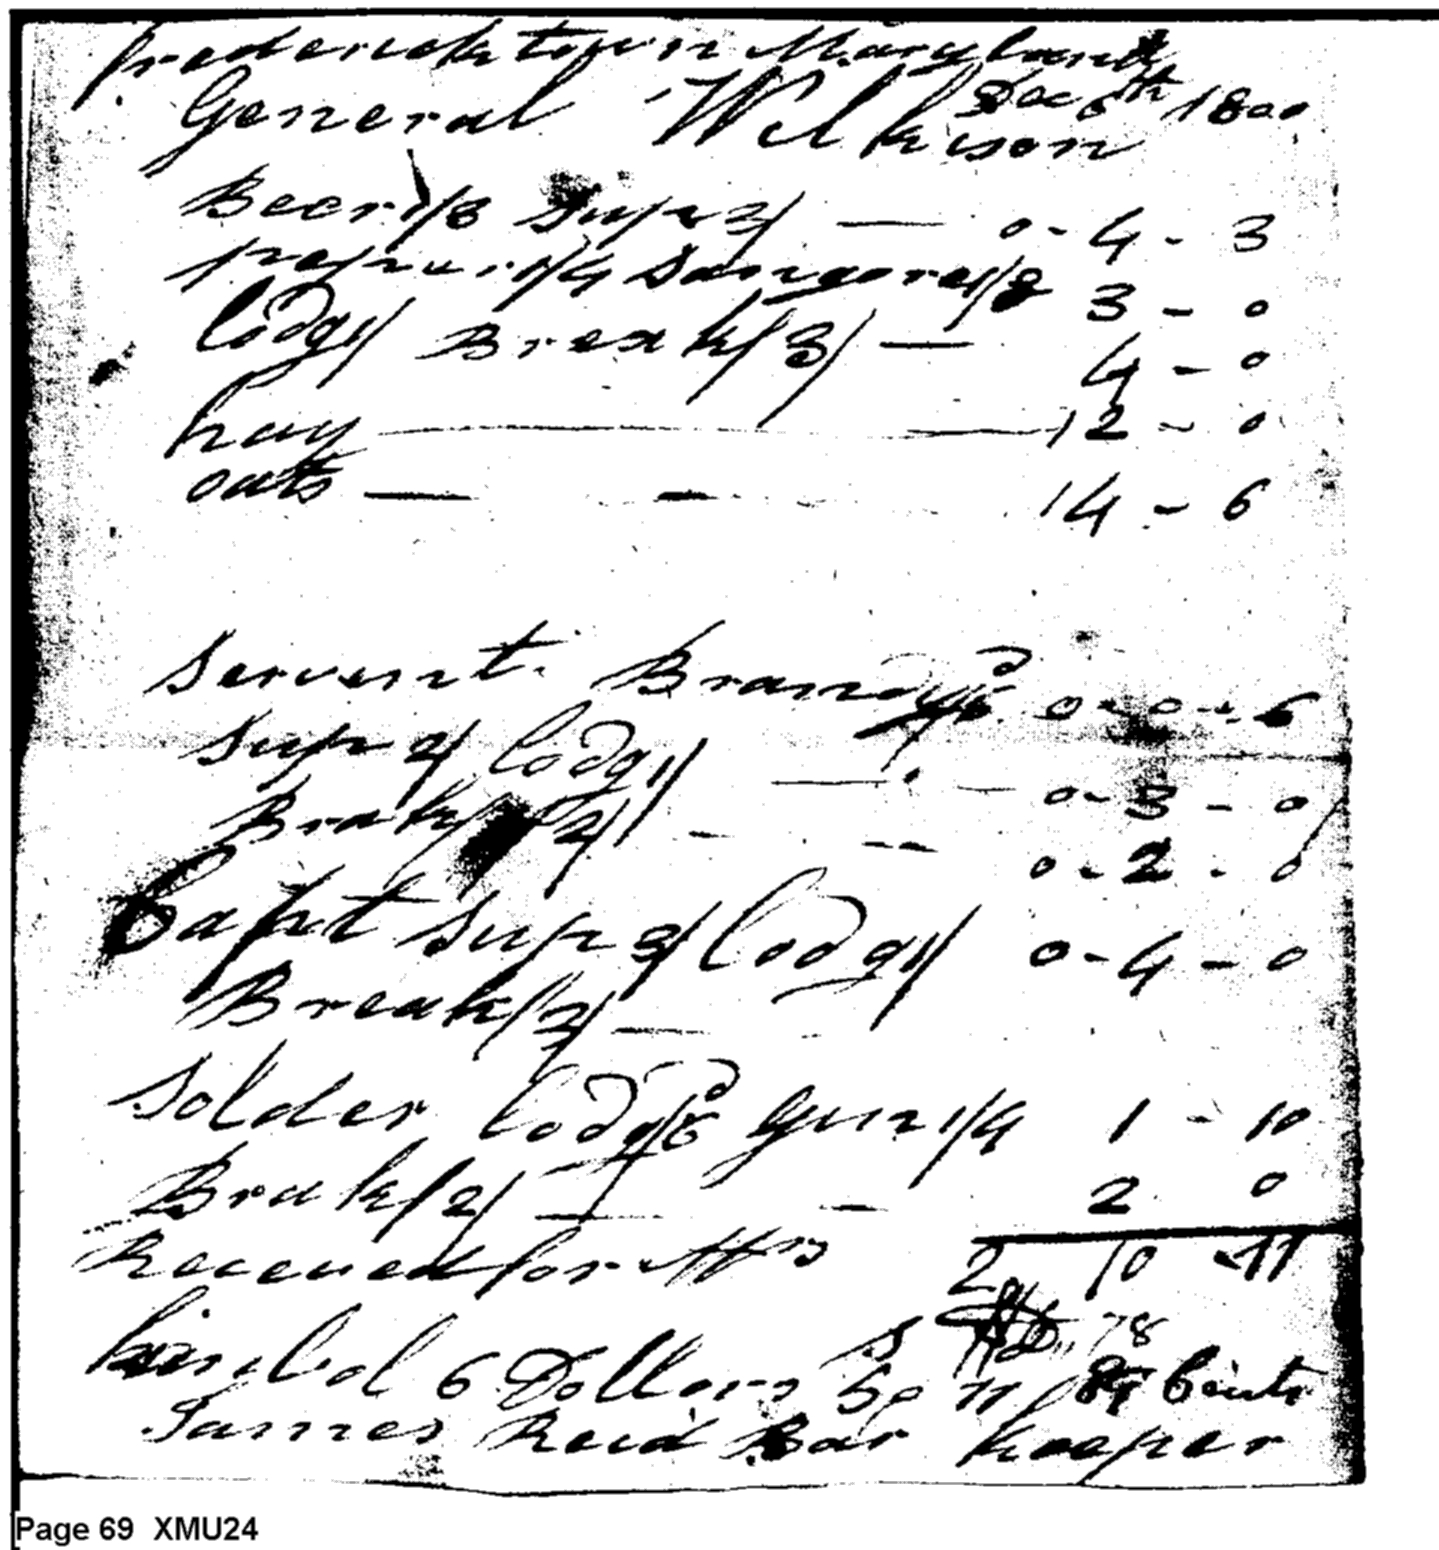 Fredericktown Maryland
Decr 6th 1800
General Wilkison
Beer 1/3 Sup 2/ — 0 - 4 - 3
1/4 Sangore 1/8 3 - 0
lodg 1/ Break/3/ — 4 - 0
hay — 12 - 0
oats — — 14 - 6
Servent. Brandy 6d 0 - 0 - 6
Sup 2/ lodg 1/ — 0 - 3 - 0
Brak/2/ — — 0 - 2 - 0
Capt Sup 3/ lodg 1/ 0 - 4 - 0
Break/2/ —
Solder lodg 6d Gin 1/4 1 - 10
Brak/2/ — — 2 0
Received for Mrs 2 10 - 11
78
Kimbol 6 Dollars 87 Cents
James Reid Bar Keeper
Page 69 XMU24